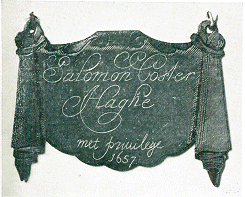 Salomon Coster
Haghe
met privilege
1657